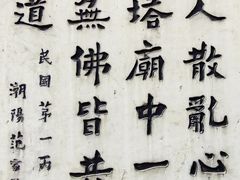 人散亂心
塔廟中一
無佛皆共
道
民國第一丙
潮陽范